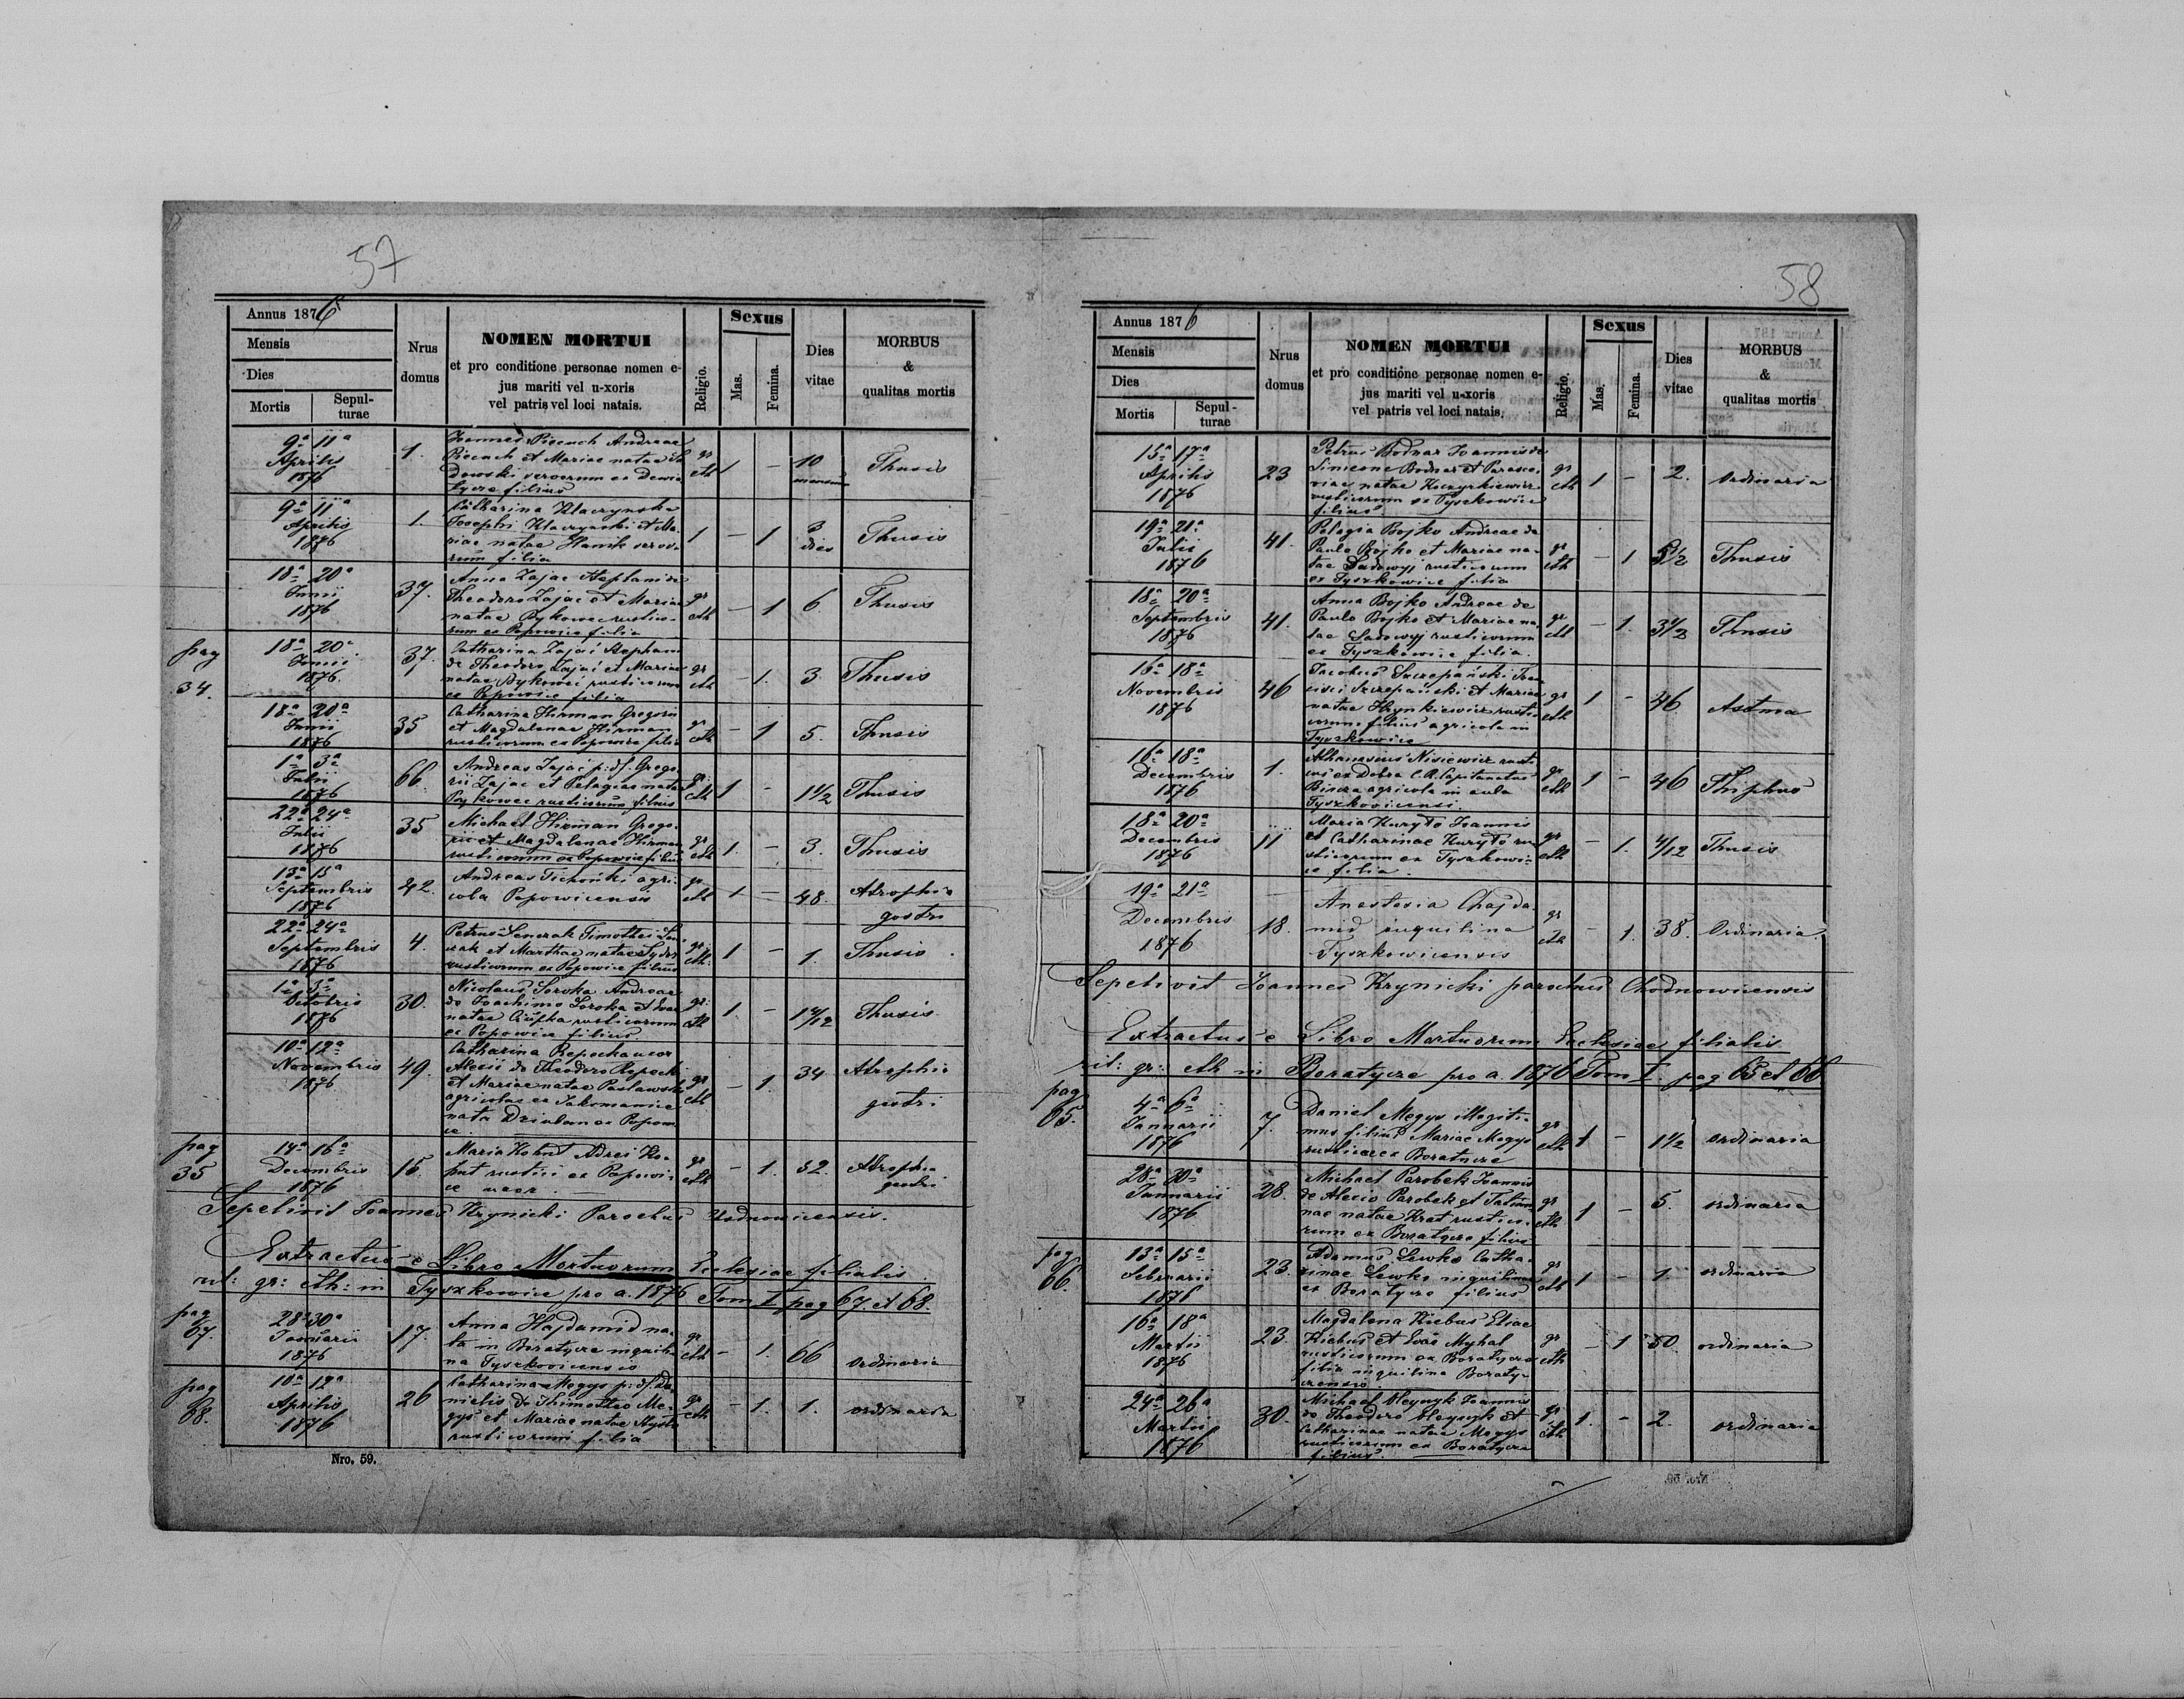 57
Annus 1876
Mensis
Dies
Mortis
Sepul-
turae
Nrus
domus
NOMEN MORTUI
et pro conditione personae nomen e-
jus mariti vel u-xoris
vel patris vel loci natais.
Religio.
Sexus
Mas.
Femina.
Dies
vitae
MORBUS
&
qualitas mortis
9a 11a
Aprilis
1876
1.
Joannes Piecuch Andreae
Piecuch et Mariae natae
filius
gr
cth
1
–
10
mensium
Thusis
9a 11a
Aprilis
1876
1.
Catharina Klaczynska
Josephi Klaczynski et Ma-
riae natae Hanik servo-
rum filia
1
–
1
3
dies
Thusis
18a 20a
Junii
1876
37.
Anna Zajac Stephani de
Theodoro Zajac et Mariae
natae Bykowec rustico-
rum ex Popowice filia
gr
cth
–
1
6
Thusis
pag
34.
18a 20a
Junii
1876.
37.
Catharina Zajać Stephani
de Theodoro Zajać et Mariae
natae Bykowec rusticorum
ex Popowice filia
gr
cth
–
1.
3.
Thusis
18a 20a
Junii
1876
35
Catharina Hirman Gregorii
et Magdalenae Hirman
rusticorum ex Popowice filia
gr
cth
–
1
5.
Thusis
1a 3a
Julii
1876
66.
Andreas Zajać p: d f. Grego-
rii Zajac et Pelagiae natae
Bykowec rusticorum filius
gr:
cth
1
–
1 1/2
Thusis
22a 24a
Julii
1876
35
Michael Hirman Grego-
rii et Magdalenae Hirman
rusticorum ex Popowice filius
gr
cth
1.
–
3.
Thusis
13a 15a
Septembris
1876
42.
Andreas Tichoński agri-
cola Popowicensis
gr
cth
1
–
48.
Atrophia
gastri
22a 24a
Septembris
1876
4.
Petrus Senczak Timothei Sen-
czak et Marthae natae
rusticorum ex Popowice filius
gr:
cth:
1
–
1.
Thusis
1a 3a
Octobris
1876
30.
Nicolaus Soroka Andreae
de Joachimo Soroka et Evae
natae rusticorum
ex Popowice filius
gr:
cth
1.
–
Thusis
10a 12a
Novembris
1876
49.
Catharina Repecka uxor
Alexii de Theodoro Repecki
et Mariae natae Paslawska
agricolae ex Jaksmanice
nata ex Popowi-
ce.
gr
cth
–
1.
34
Atrophia
gastri
pag
35
14a 16a
Decembris
1876
15.
Maria Kohut Adrei Ko-
hut rustici ex Popowi-
ce uxor
gr
cth
–
1.
32.
Atrophia
gastri
Sepelivit Joannes Krynicki Parochus Chodnowicensis.
Extractus e Libro Mortuorum Ecclesiae filialis
rit: gr: cth: in Tyszkowice pro a. 1876 Tom I pag 67 et 68.
pag
67.
28a 30a
Januarii
1876
17.
Anna Hajdamid na-
ta in Boratycze inquili-
na Tyszkovicensis
gr
cth
–
1.
66
ordinaria
pag
68.
10a 12a
Aprilis
1876
26
Catharina Megys p: d f. Da-
nielis de Thimotheo Me-
gys et Mariae natae
rusticorum filia
gr
cth
–
1.
1.
ordinaria
Nro. 59.
58
Annus 1876
Mensis
Dies
Mortis
Sepul-
turae
Nrus
domus
NOMEN MORTUI
et pro conditione personae nomen e-
jus mariti vel u-xoris
vel patris vel loci natais.
Religio.
Sexus
Mas.
Femina.
Dies
vitae
MORBUS
&
qualitas mortis
15a 17a
Aprilis
1876
23
Petrus Bodnar Joannis de
Simeone Bodnar et Parasce-
viae natae
rusticorum ex Tyszkowice
filius
gr
cth
1
–
2.
ordinaria
19a 21a
Julii
1876
41.
Pelagia Bojko Andreae de
Paulo Bojko et Mariae na-
tae Sadowyj rusticorum
ex Tyszkowice filia
gr
cth
–
1
5 1/2
Thusis
18a 20a
Septembris
1876
41.
Anna Bojko Andreae de
Paulo Bojko et Mariae na-
tae Sadowyj rusticorum
ex Tyszkowice filia.
gr
cth
–
1.
3 1/2
Thusis
16a 18a
Novembris
1876
46
Jacobus Szczepański
Szczepański et Mariae
natae Hrynkiewicz rusti-
corum filius agricola in
Tyszkowice
gr
cth
1
–
46.
Astma
16a 18a
Decembris
1876
1.
Athanasius Nisiewicz rusti-
cus ex Dobra C. R. Capitanatus
Bircza agricola in aula
Tyszkovicensi.
gr
cth
1
–
46
Thiphus
18a 20a
Decembris
1876
11
Maria Kuryło Joannis
et Catharinae Kuryło ru-
sticorum ex Tyszkowi-
ce filia.
gr
cth
–
1.
4/12
Thusis
19a 21a
Decembris
1876
18.
Anastasia Chajda-
mid inquilina
Tyszkowicensis
gr
cth
–
1.
38.
Ordinaria.
Sepelivit Joannes Krynicki parochus Chodnowicensis
Extractus e Libro Mortuorum Ecclesiae filialis
rit: gr: cth in Boratycze pro a. 1876 Tom I. pag 65 et 66
pag
65.
4a 6a
Januarii
1876
7.
Daniel Megys illegiti-
mus filius Mariae Megys
rusticae ex Boratycze
gr
cth
1
–
1 1/2
ordinaria
28a 30a
Januarii
1876
28.
Michael Parobek Joannis
de Alexio Parobek et Tatian-
nae natae Krat rustico-
rum ex Boratycze filius
gr
cth
1
–
5.
ordinaria
pag
66.
13a 15a
Februarii
1876
23.
Adamus Lewko Catha-
rinae Lewko inquilinae
ex Boratycze filius
gr
cth
1
–
1
ordinaria
16a 18a
Martii
1876
23.
Magdalena Kiebus Eliae
Kiebus et Evae Myhal
rusticorum ex Boratycze
filia inquilina Boraty-
czensis
gr
cth
–
1
50.
ordinaria
24a 26a
Martii
1876
30.
Michael Joannis
de Theodoro et
Catharinae natae Megys
rusticorum ex Boratycze
filius.
gr
cth
1.
–
2.
ordinaria